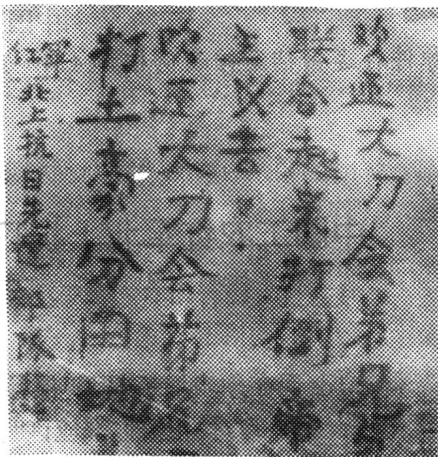 欢迎大刀会弟兄
联合起来打倒帝
主义者
欢迎大刀会弟兄
打土豪分田地
红军北上抗日先遣队